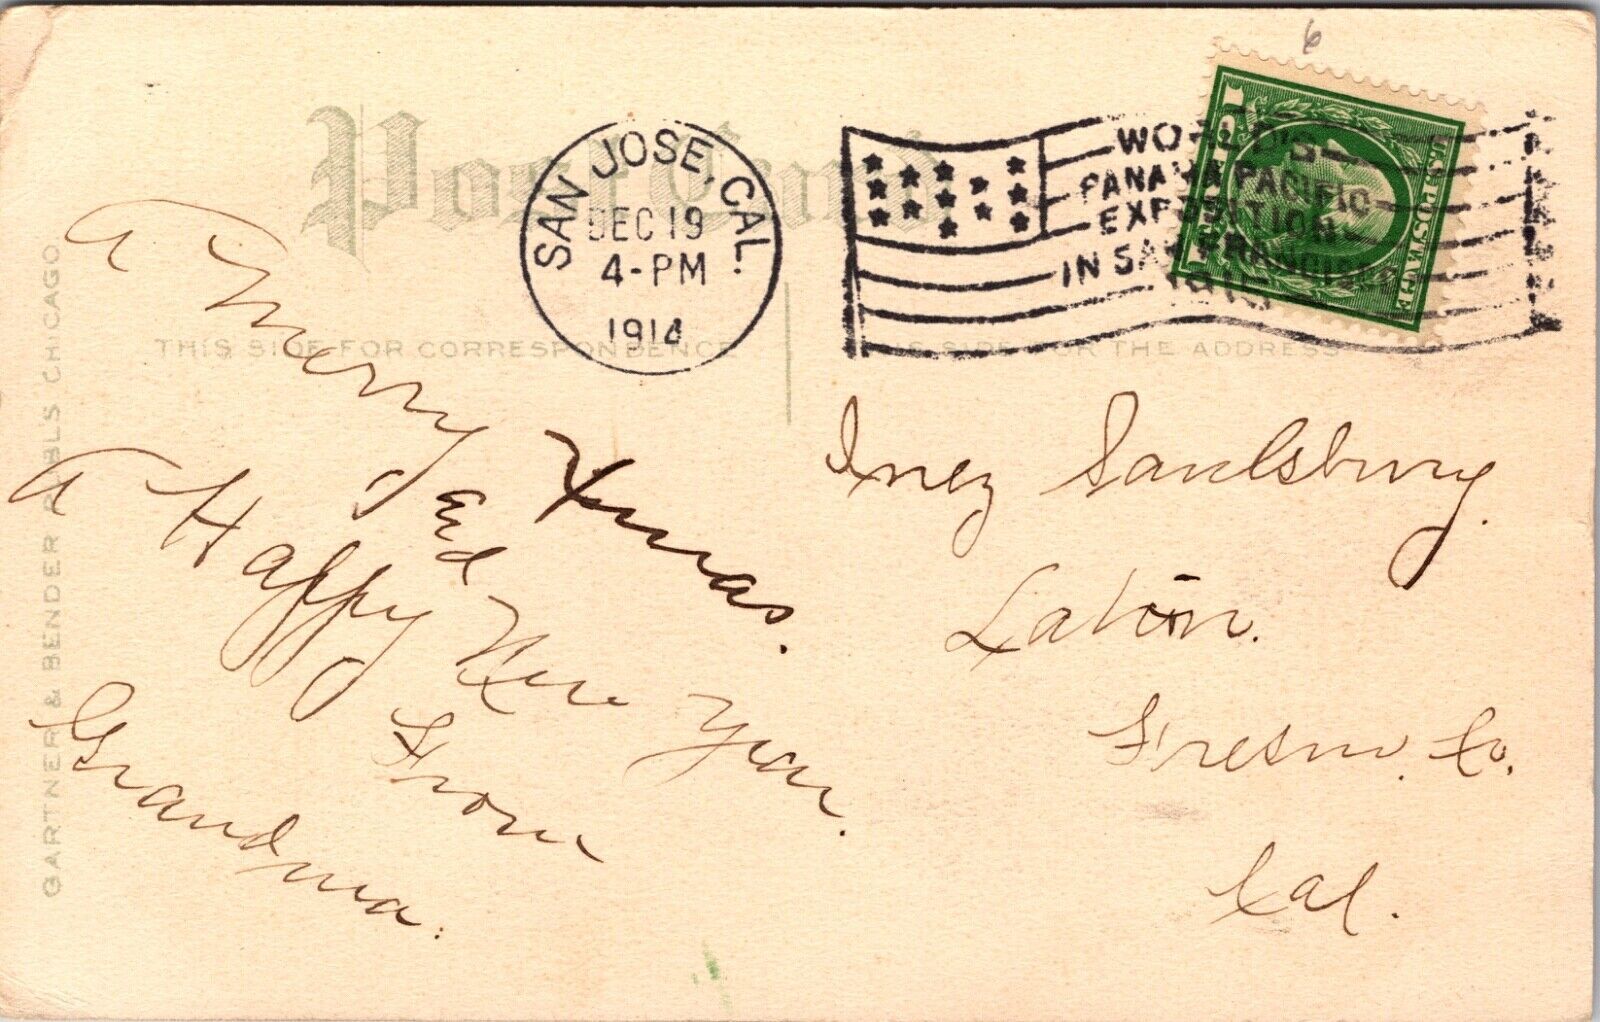 6
Post Card
SAN JOSE, CAL.
DEC 19
4-PM
1914
WORLD'S
PANAMA PACIFIC
EXPOSITION
IN SAN FRANCISCO
1915
U.S. POSTAGE
1
THIS SIDE FOR CORRESPONDENCE
THIS SIDE FOR THE ADDRESS
GARTNER & BENDER PUBL'S CHICAGO
A Merry Xmas.
and
A Happy New Year.
From
Grandma.
Inez Saulsbury.
Laton.
Fresno. Co.
Cal.